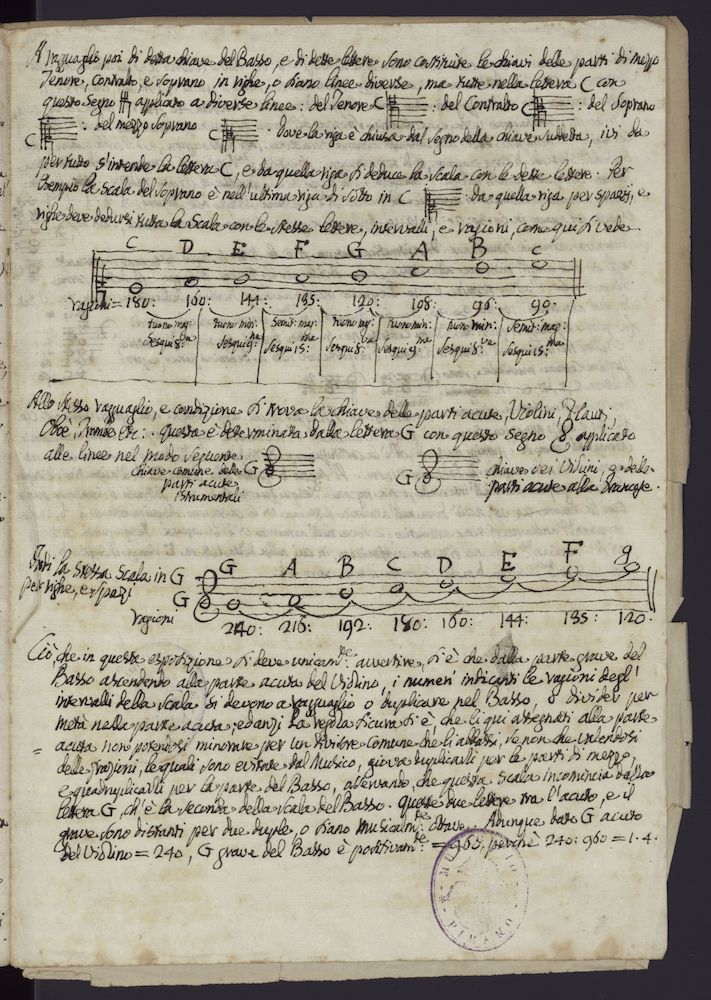 A ragguaglio poi di detta chiave del Basso, e di dette lettere sono costituite le chiavi delle parti di mezzo
Tenore, Contralto, e Soprano in righe, o siano linee diverse, ma tutte nella lettera C con
questo segno applicato a diverse linee: del Tenore C : del Contralto C : del Soprano
C : del mezzo Soprano C : Dove la riga è chiusa dal segno della chiave suddetta, ivi da
per tutto s'intende la lettera C, e da quella riga si deduce la scala con le dette lettere. Per
Esempio la Scala del Soprano è nell'ultima riga di sotto in C da quella riga per spazj, e
righe deve dedursi tutta la Scala con le stesse lettere, intervalli, e ragioni, come qui si vede
C D E F G A B C
ragioni = 180: 160: 144: 135: 120: 108: 96: 90:
tuono mag: tuono min: Semit: mag: tuono mag: tuono min: tuono min: Semit: mag:
Sesqui 8:va Sesqui 9:na Sesqui 15:ma Sesqui 8:va Sesqui 9:na Sesqui 8:va Sesqui 15:ma
Allo stesso ragguaglio, e condizione si trova la chiave delle parti acute, Violini, Flauti,
Oboè, Trombe etc: questa è determinata dalla lettera G con questo segno applicato
alle linee nel modo seguente
chiave comune delle G
parti acute
istrumentali
G chiave dei Violini, e delle
parti acute alla Francese.
Indi la stessa Scala in G
per righe, e spazj
G A B C D E F g
G
ragioni 240: 216: 192: 180: 160: 144: 135: 120:
Ciò, che in questa esposizione si deve unicam:te avvertire, si è che dalla parte grave del
Basso ascendendo alla parte acuta del Violino, i numeri indicanti le ragioni degl'
intervalli della scala si devono a ragguaglio o duplicare nel Basso, o divider per
metà nella parte acuta; ed anzi la regola sicura si è, che li qui assegnati alla parte
acuta non potendosi minorare per un divisore comune che li abbassi, se non che valendosi
delle frazioni, le quali sono evitate dal Musico, giova duplicarli per le parti di mezzo,
e quadruplicarli per la parte del Basso, osservando, che questa scala incomincia dalla
lettera G, ch'è la seconda della scala del Basso. Queste due lettere tra l'acuto, e il
grave sono distanti per due duple, o siano musicalm:te ottave. Adunque dato G acuto
del Violino = 240, G grave del Basso è positivam:te = 960: perchè 240: 960 = 1. 4.
PIRANO